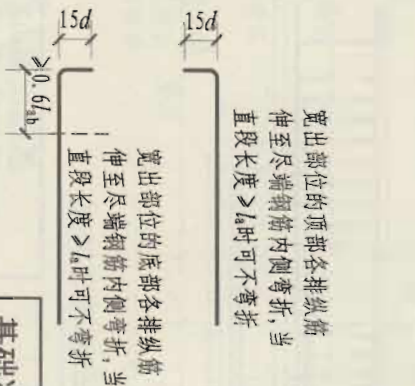 15d
15d
宽出部位的顶部各排纵筋
伸至尽端钢筋内侧弯折,当
直段长度≥la时可不弯折
≥0.6lab
宽出部位的底部各排纵筋
伸至尽端钢筋内侧弯折,当
直段长度≥la时可不弯折
基础